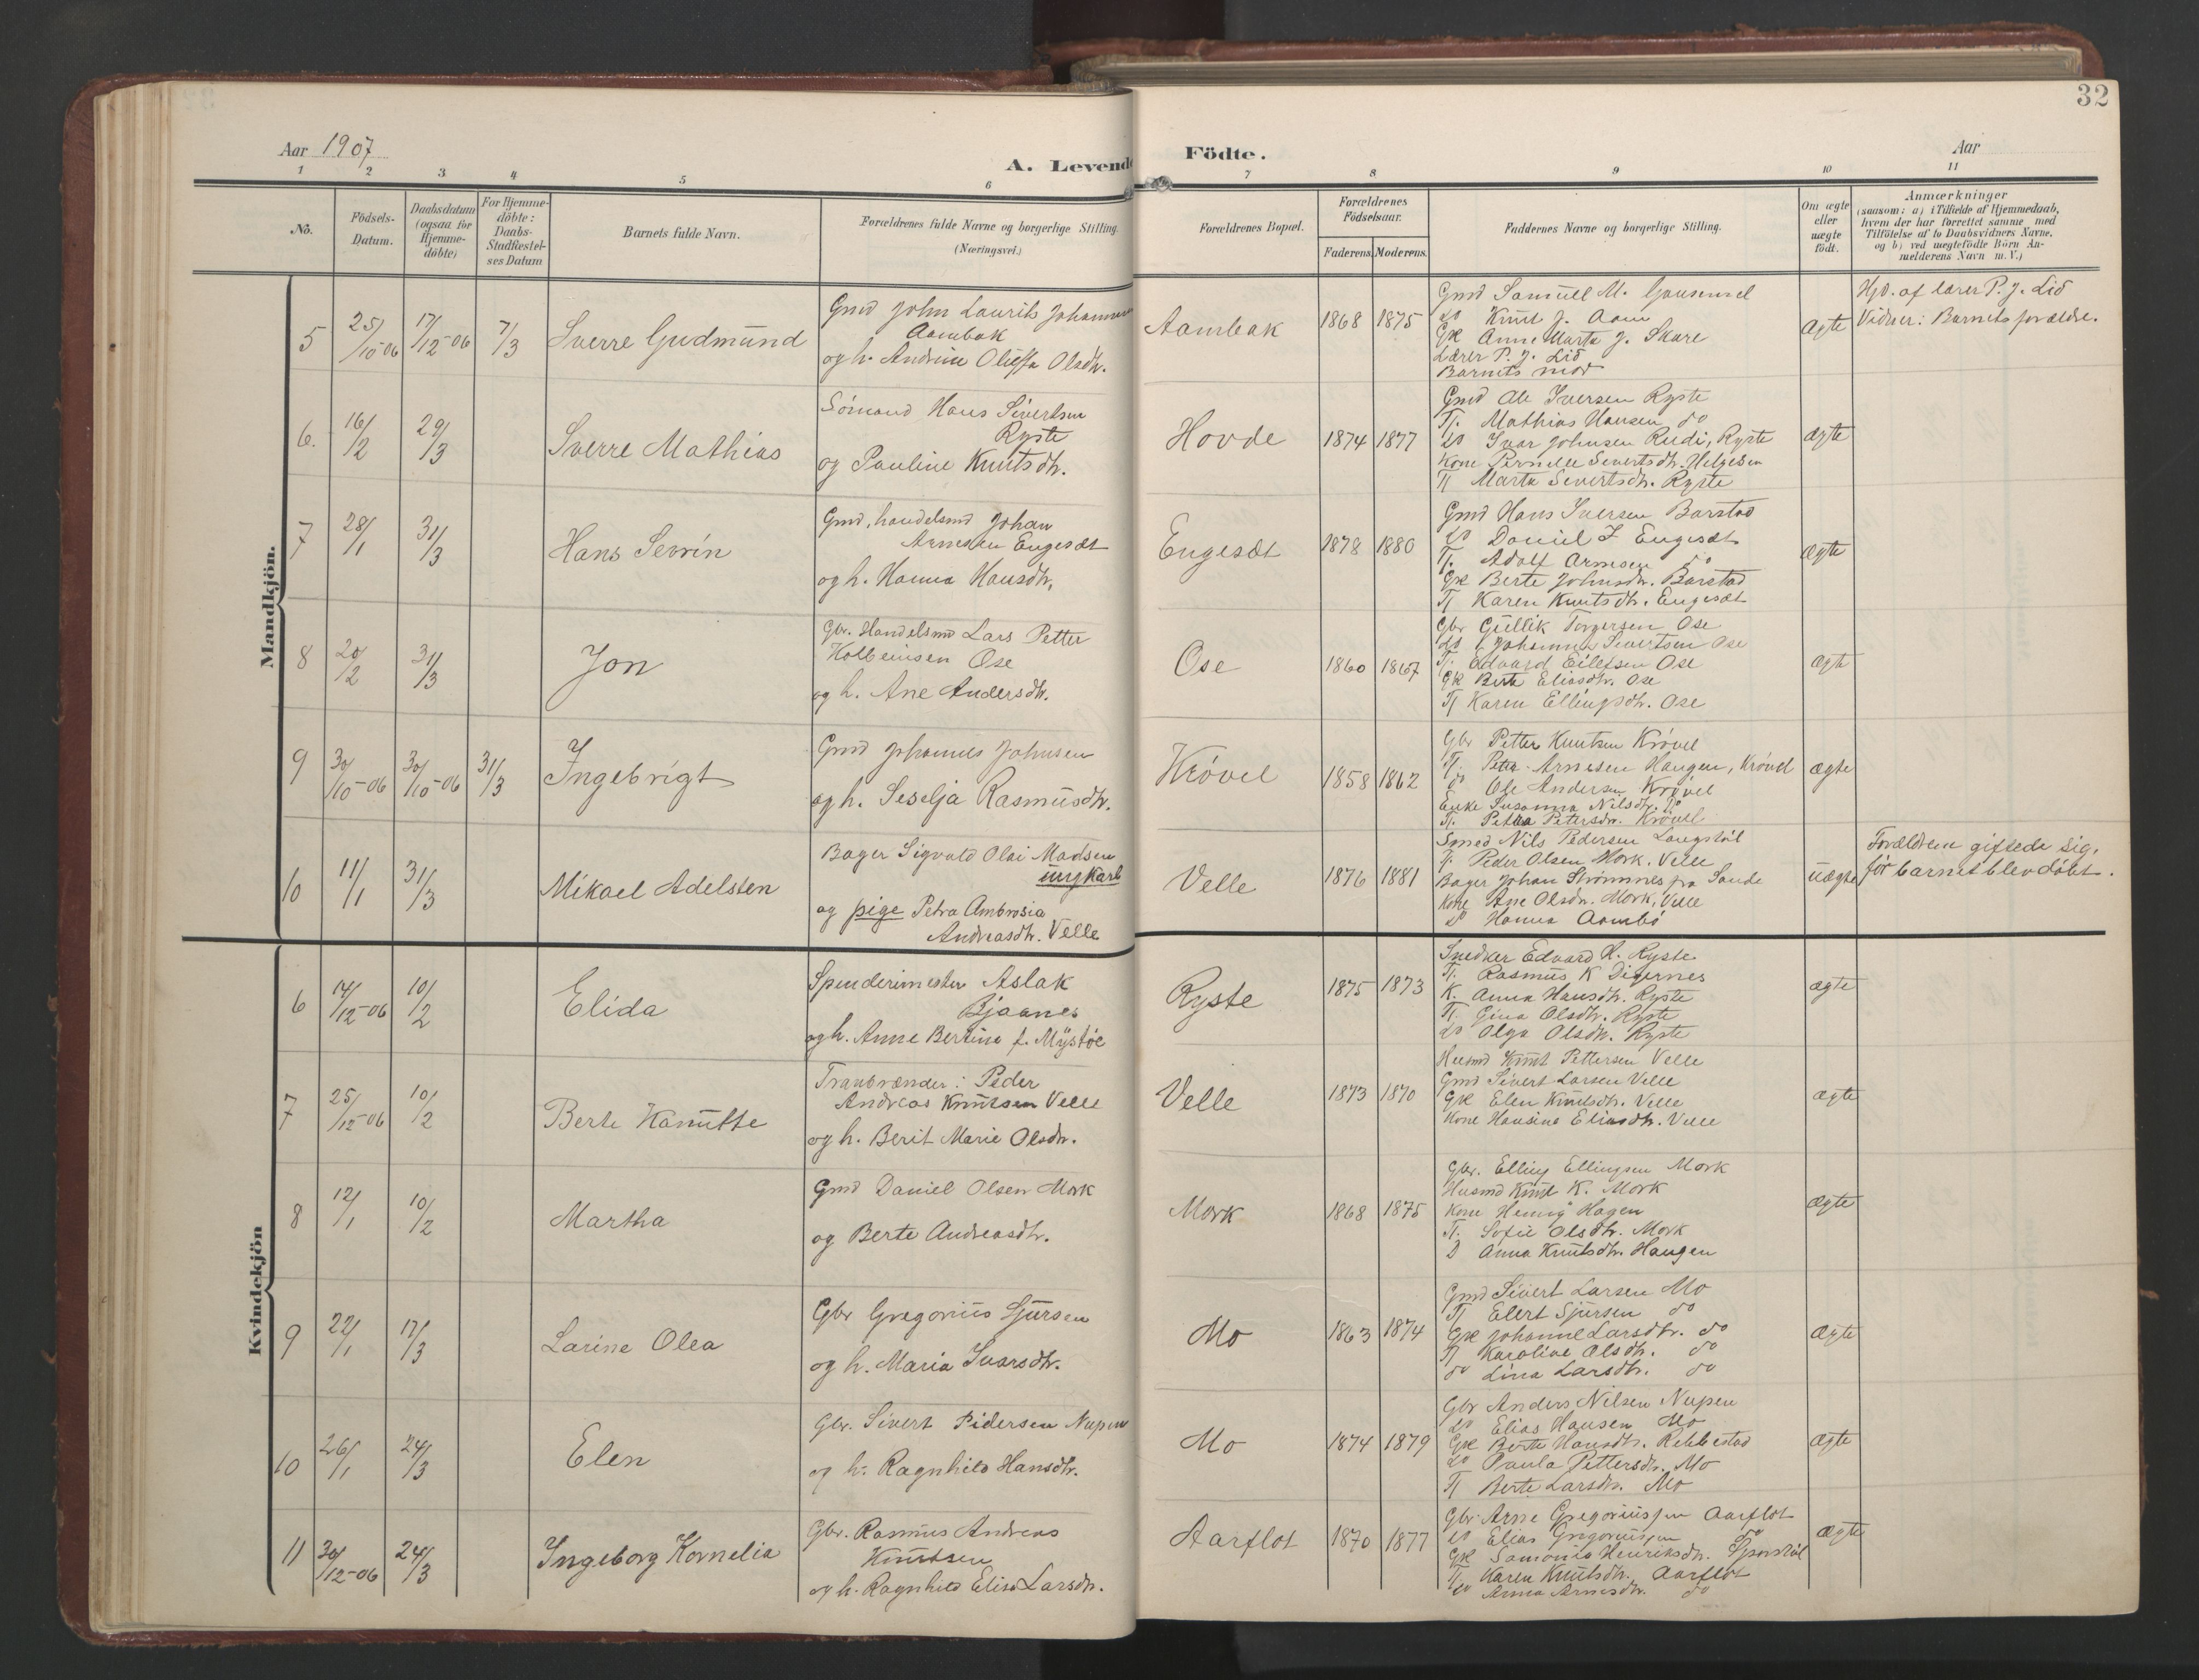 32
Aar 1907
A. Levende Födte.
Aar
1 2 3 4 5 6 7 8 9 10 11
No.
Födsels-Datum.
Daabsdatum (ogsaa for Hjemmedöbte)
For Hjemmedöbte: Daabs-Stadfestelses Datum
Barnets fulde Navn.
Forældrenes fulde Navne og borgerlige Stilling.
(Næringsvei.)
Forældrenes Bopæl.
Forældrenes Födselsaar.
Faderens. Moderens.
Faddernes Navne og borgerlige Stilling.
Om ægte eller uægte födt.
Anmærkninger
(saasom: a) i Tilfælde af Hjemmedaab,
hvem der har forrettet samme med
Tilföielse af to Daabsvidners Navne,
og b) ved uægtefödte Börn Anmelderens Navn m. V.)
Mandkjön.
5 25/10-06 17/12-06 7/3 Sverre Gudmund
Gmd John Laurits Johannes
Aambak
og h. Andrine Oliffa Olsdtr.
Aambak 1868 1875
Gmd Samuel M.
do Knut J. Aam
Gk Anne Marta J. Skare
Lærer P. J. Lid
Barnets mor
ægte
Hjd. af lærer P. J. Lid
Vidner: Barnets forældre.
6. 16/2 29/3 Sverre Mathias
Sömand Hans Sivertsen
Ryste
og Pauline Knutsdtr.
Hovde 1874 1877
Gmd Ole Iversen Ryste
Tj. Mathias Hansen do
do Ivar Johnsen Rudi, Ryste
Kone Pernille Severtsdtr. Helgesen
Tj Marta Severtsdtr. Ryste
ægte
7 28/1 31/3 Hans Sevrin
Gmd, handelsmd Johan
Arnesen Engesæt
og h. Hanna Hansdtr,
Engesæt 1878 1880
Gmd Hans Iversen Barstad
do Daniel I Engesæt
Tj. Adolf Arnesen do
Gk Berte Johnsdtr. Barstad
Tj Karen Knutsdtr. Engesæt
ægte
8 20/2 31/3 Jon
Gbr. Handelsmd Lars Petter
Kolbeinsen Ose
og h. Ane Andersdtr.
Ose 1860 1867
Gbr Gullik Torgersen Ose
do Johannes Sivertsen Ose
Tj. Edvard Eilifsen Ose
Gk Berte Eliasdtr. Ose
Tj Karen Ellingsdtr. Ose
ægte
9 30/10-06 30/10-06 31/3 Ingebrigt
Gmd Johannes Johnsen
og h. Seselja Rasmusdtr.
Krövel 1858 1862
Gbr Petter Knutsen Krövel
Tj. Peter Arnesen Haugen, Krövel
do Ole Andersen Krövel
Enke Susanna Nilsdtr. do
Tj. Petra Petersdtr. Krövel
ægte
10 11/1 31/3 Mikael Adelsten
Bager Sigvald Olai Madsen
ungkarl
og pige Petra Ambrosia
Andreasdtr. Velle
Velle 1876 1881
Smed Nils Pedersen Langstöl
Tj. Peder Olsen Mork, Velle
Bager Johan Strömmes fra Sande
Kone Ane Olsdtr. Mork, Velle
do Hanna Aambö
uægte
Forældrene giftede sig,
för barnet blev döbt.
Kvindekjön
6 14/12-06 10/2 Elida
Spinderimester Aslak
Bjaanes
og h. Anne Bertine f. Myställ
Ryste 1875 1873
Snedker Edvard H. Ryste
Tj. Rasmus K Digernes
K. Anna Hansdtr. Ryste
Tj. Gina Olsdtr. Ryste
do Olga Olsdtr. Ryste
ægte
7 25/12-06 10/2 Berte Kanutte
Tranbrænder: Peder
Andreas Knutsen Velle
og h. Berit Marie Olsdtr.
Velle 1873 1870
Husmd Knut Pettersen Velle
Gmd Sivert Larsen Velle
Gk Elen Knutsdtr. Velle
Kone Hansine Eliasdtr. Velle
ægte
8 12/1 10/2 Martha
Gmd Daniel Olsen Mork
og Berte Andreasdtr.
Mork 1868 1875
Gbr. Elling Ellingsen Mork
Husmd Knut K. Mork
Kone Henny Hagen
Tj. Sofie Olsdtr. Mork
D Anna Knutsdtr. Haugen
ægte
9 22/1 17/3 Larine Olea
Gbr Gregorius Sjursen
og h. Maria Ivarsdtr.
Mo 1863 1874
Gmd Sivert Larsen Mo
Tj Elert Sjursen do
Gk Johanne Larsdtr. do
Tj Karoline Olsdtr. do
do Lina Larsdtr. do
ægte
10 26/1 24/3 Elen
Gbr. Sivert Pidersen Nupen
og h. Ragnhild Hansdtr.
Mo 1874 1879
Gbr Anders Nilsen Nupen
do Elias Hansen Mo
Gk Berte Hansdtr. Rebbestad
do Paula Pettersdtr. Mo
Tj Berte Larsdtr. Mo
ægte
11 30/12-06 24/3 Ingeborg Kornelia
Gbr. Rasmus Andreas
Knutsen
og h. Ragnhild Elise Larsdtr.
Aarflot 1870 1877
Gbr Arne Gregoriussen Aarflot
do Elias Gregoriussen do
Gk Henriksdtr.
Tj. Karen Knutsdtr. Aarflot
do Anna Arnesdtr. do
ægte